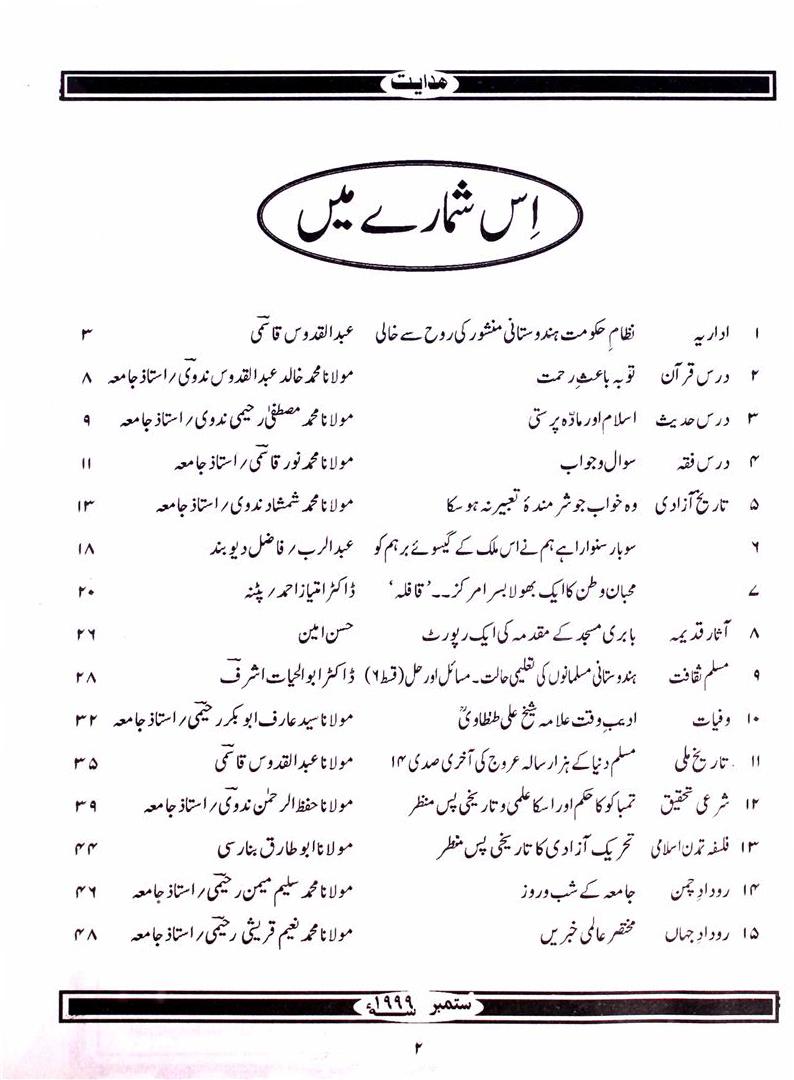 ھدایت
اِس شمارے میں
۱ اداریہ نظامِ حکومت ہندوستانی منشور کی روح سے خالی عبدالقدوس قاسمی ۳
۲ درس قرآن توبہ باعثِ رحمت مولانا محمد خالد عبدالقدوس ندوی/استاذ جامعہ ۸
۳ درس حدیث اسلام اور مادّہ پرستی مولانا محمد مصطفیٰ رحیمی ندوی/استاذ جامعہ ۹
۴ درس فقہ سوال وجواب مولانا محمد نور قاسمی/استاذ جامعہ ۱۱
۵ تاریخ آزادی وہ خواب جو شرمندۂ تعبیر نہ ہوسکا مولانا محمد شمشاد ندوی/استاذ جامعہ ۱۳
۶ سو بار سنوارا ہے ہم نے اس ملک کے گیسوئے برہم کو عبدالرب/فاضل دیوبند ۱۸
۷ محبان وطن کا ایک بھولا بسرا مرکز۔۔’قافلہ‘ ڈاکٹر امتیاز احمد/پٹنہ ۲۰
۸ آثار قدیمہ بابری مسجد کے مقدمہ کی ایک رپورٹ حسن امین ۲۶
۹ مسلم ثقافت ہندوستانی مسلمانوں کی تعلیمی حالت۔مسائل اور حل (قسط ۶) ڈاکٹر ابوالحیات اشرف ۲۸
۱۰ وفیات ادیبِ وقت علامہ شیخ علی طنطاویؒ مولانا سید عارف ابوبکر رحیمی/استاذ جامعہ ۳۲
۱۱ تاریخ ملی مسلم دنیا کے ہزار سالہ عروج کی آخری صدی ۱۴ مولانا عبدالقدوس قاسمی ۳۵
۱۲ شرعی تحقیق تمباکو کا حکم اور اسکا علمی و تاریخی پس منظر مولانا حفظ الرحمٰن ندوی/استاذ جامعہ ۳۹
۱۳ فلسفہ تمدن اسلامی تحریک آزادی کا تاریخی پس منظر مولانا ابو طارق بنارسی ۴۴
۱۴ رودادِ چمن جامعہ کے شب وروز مولانا محمد سلیم میمن رحیمی/استاذ جامعہ ۴۶
۱۵ رودادِ جہاں مختصر عالمی خبریں مولانا محمد نعیم قریشی رحیمی/استاذ جامعہ ۴۸
ستمبر ۱۹۹۹ء
۲